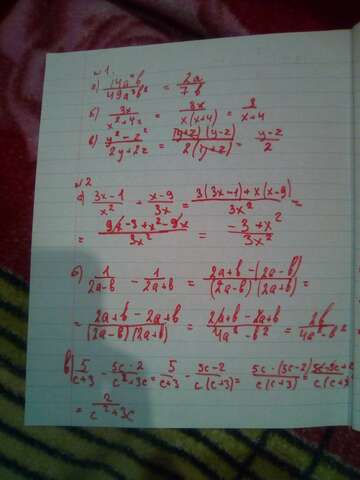 №1
а) 14a⁴b/49a³b² = 2a/7b
б) 3x/x²+4x = 3x/x(x+4) = 3/x+4
в) y²-z²/2y+2z = (y+z)(y-z)/2(y+z) = y-z/2
№2
а) 3x-1/x² + x-9/3x = 3(3x-1)+x(x-9)/3x² =
= 9x-3+x²-9x/3x² = -3+x²/3x²
б) 1/2a-b - 1/2a+b = 2a+b-(2a-b)/(2a-b)(2a+b) =
= 2a+b-2a+b/(2a-b)(2a+b) = 2a+b-2a+b/4a²-b² = 2b/4a²-b²
в) 5/c+3 - 5c-2/c²+3c = 5/c+3 - 5c-2/c(c+3) = 5c-(5c-2)/c(c+3) = 5c-5c+2/c(c+3)
= 2/c²+3c